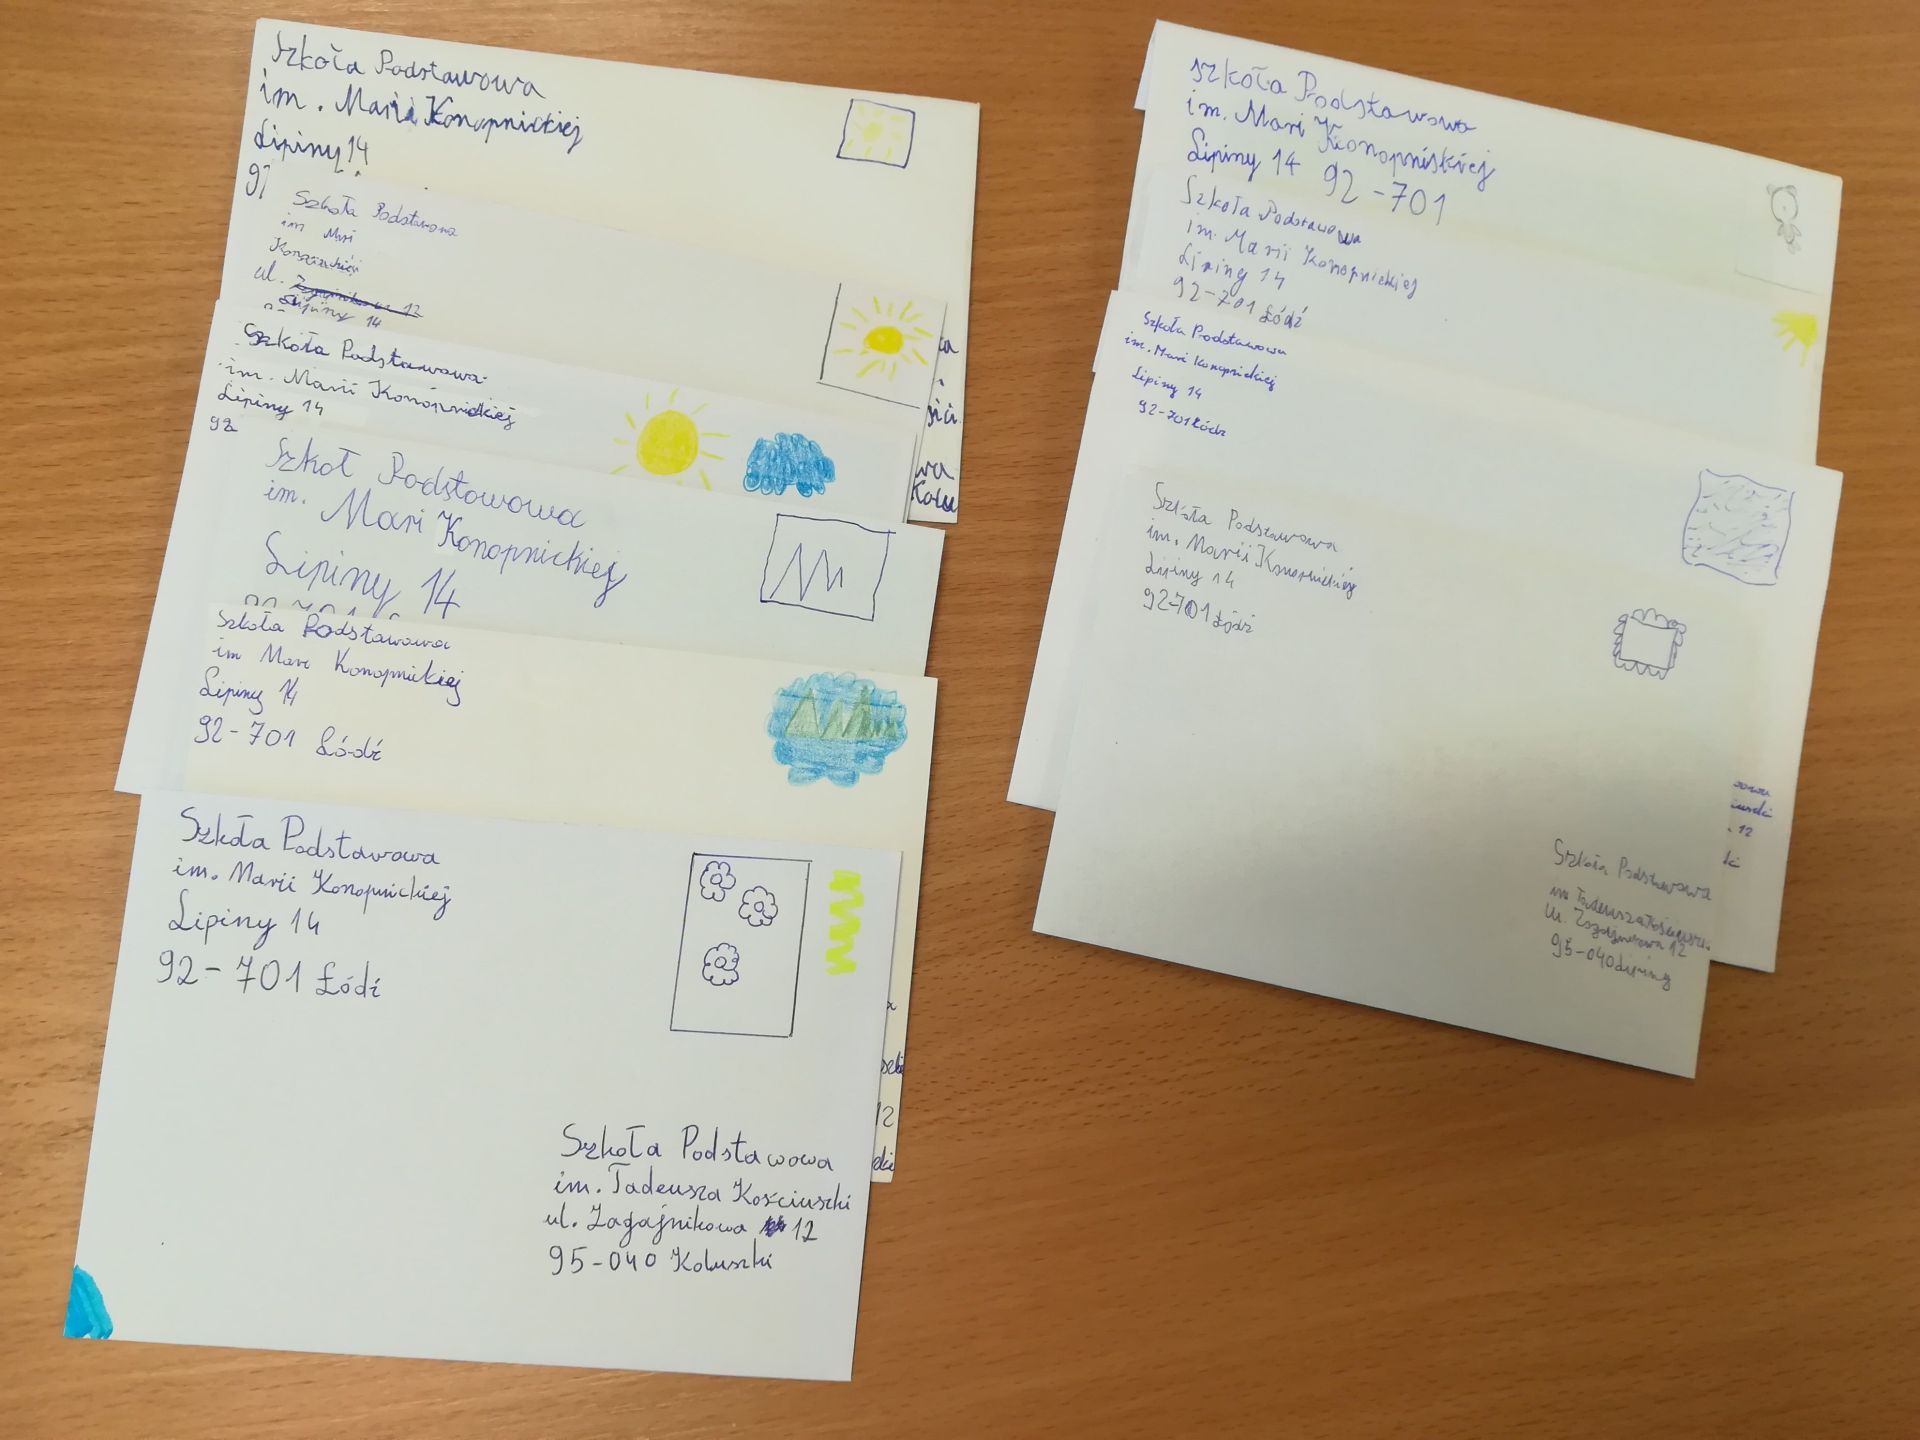 Szkoła Podstawowa
im. Marii Konopnickiej
Lipiny 14
Szkoła Podstawowa
im Mari
ul.
Lipiny 14
Szkoła Podstawowa
im. Marii Konopnickiej
Lipiny 14
92
Szkoł Podstowowa
im. Mari Konopnickiej
Lipiny 14
Szkoła Podstawowa
im Mari Konopnickiej
Lipiny 14
92-701 Łódź
Szkoła Podstawowa
im. Marii Konopnickiej
Lipiny 14
92-701 Łódź
12
Szkoła Podstawowa
im. Tadeusza Kościuszki
ul. Zagajnikowa 12
95-040 Koluszki
Szkoła Podstawowa
im. Mari Konopniskiej
Lipiny 14 92-701
Szkoła Podstawowa
im. Marii Konopnickiej
Lipiny 14
92-701 Łódź
Szkoła Podstawowa
im. Mari Konopnickiej
Lipiny 14
92-701 Łódź
Szkoła Podstawowa
im. Marii Konopnickiej
Lipiny 14
92-701 Łódź
12
Szkoła Podstawowa
im Tadeusza
ul. Zagajnikowa 12
95-040